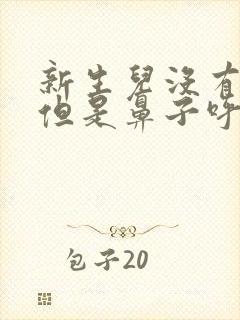 新生兒沒有
但是鼻子呼
包子20